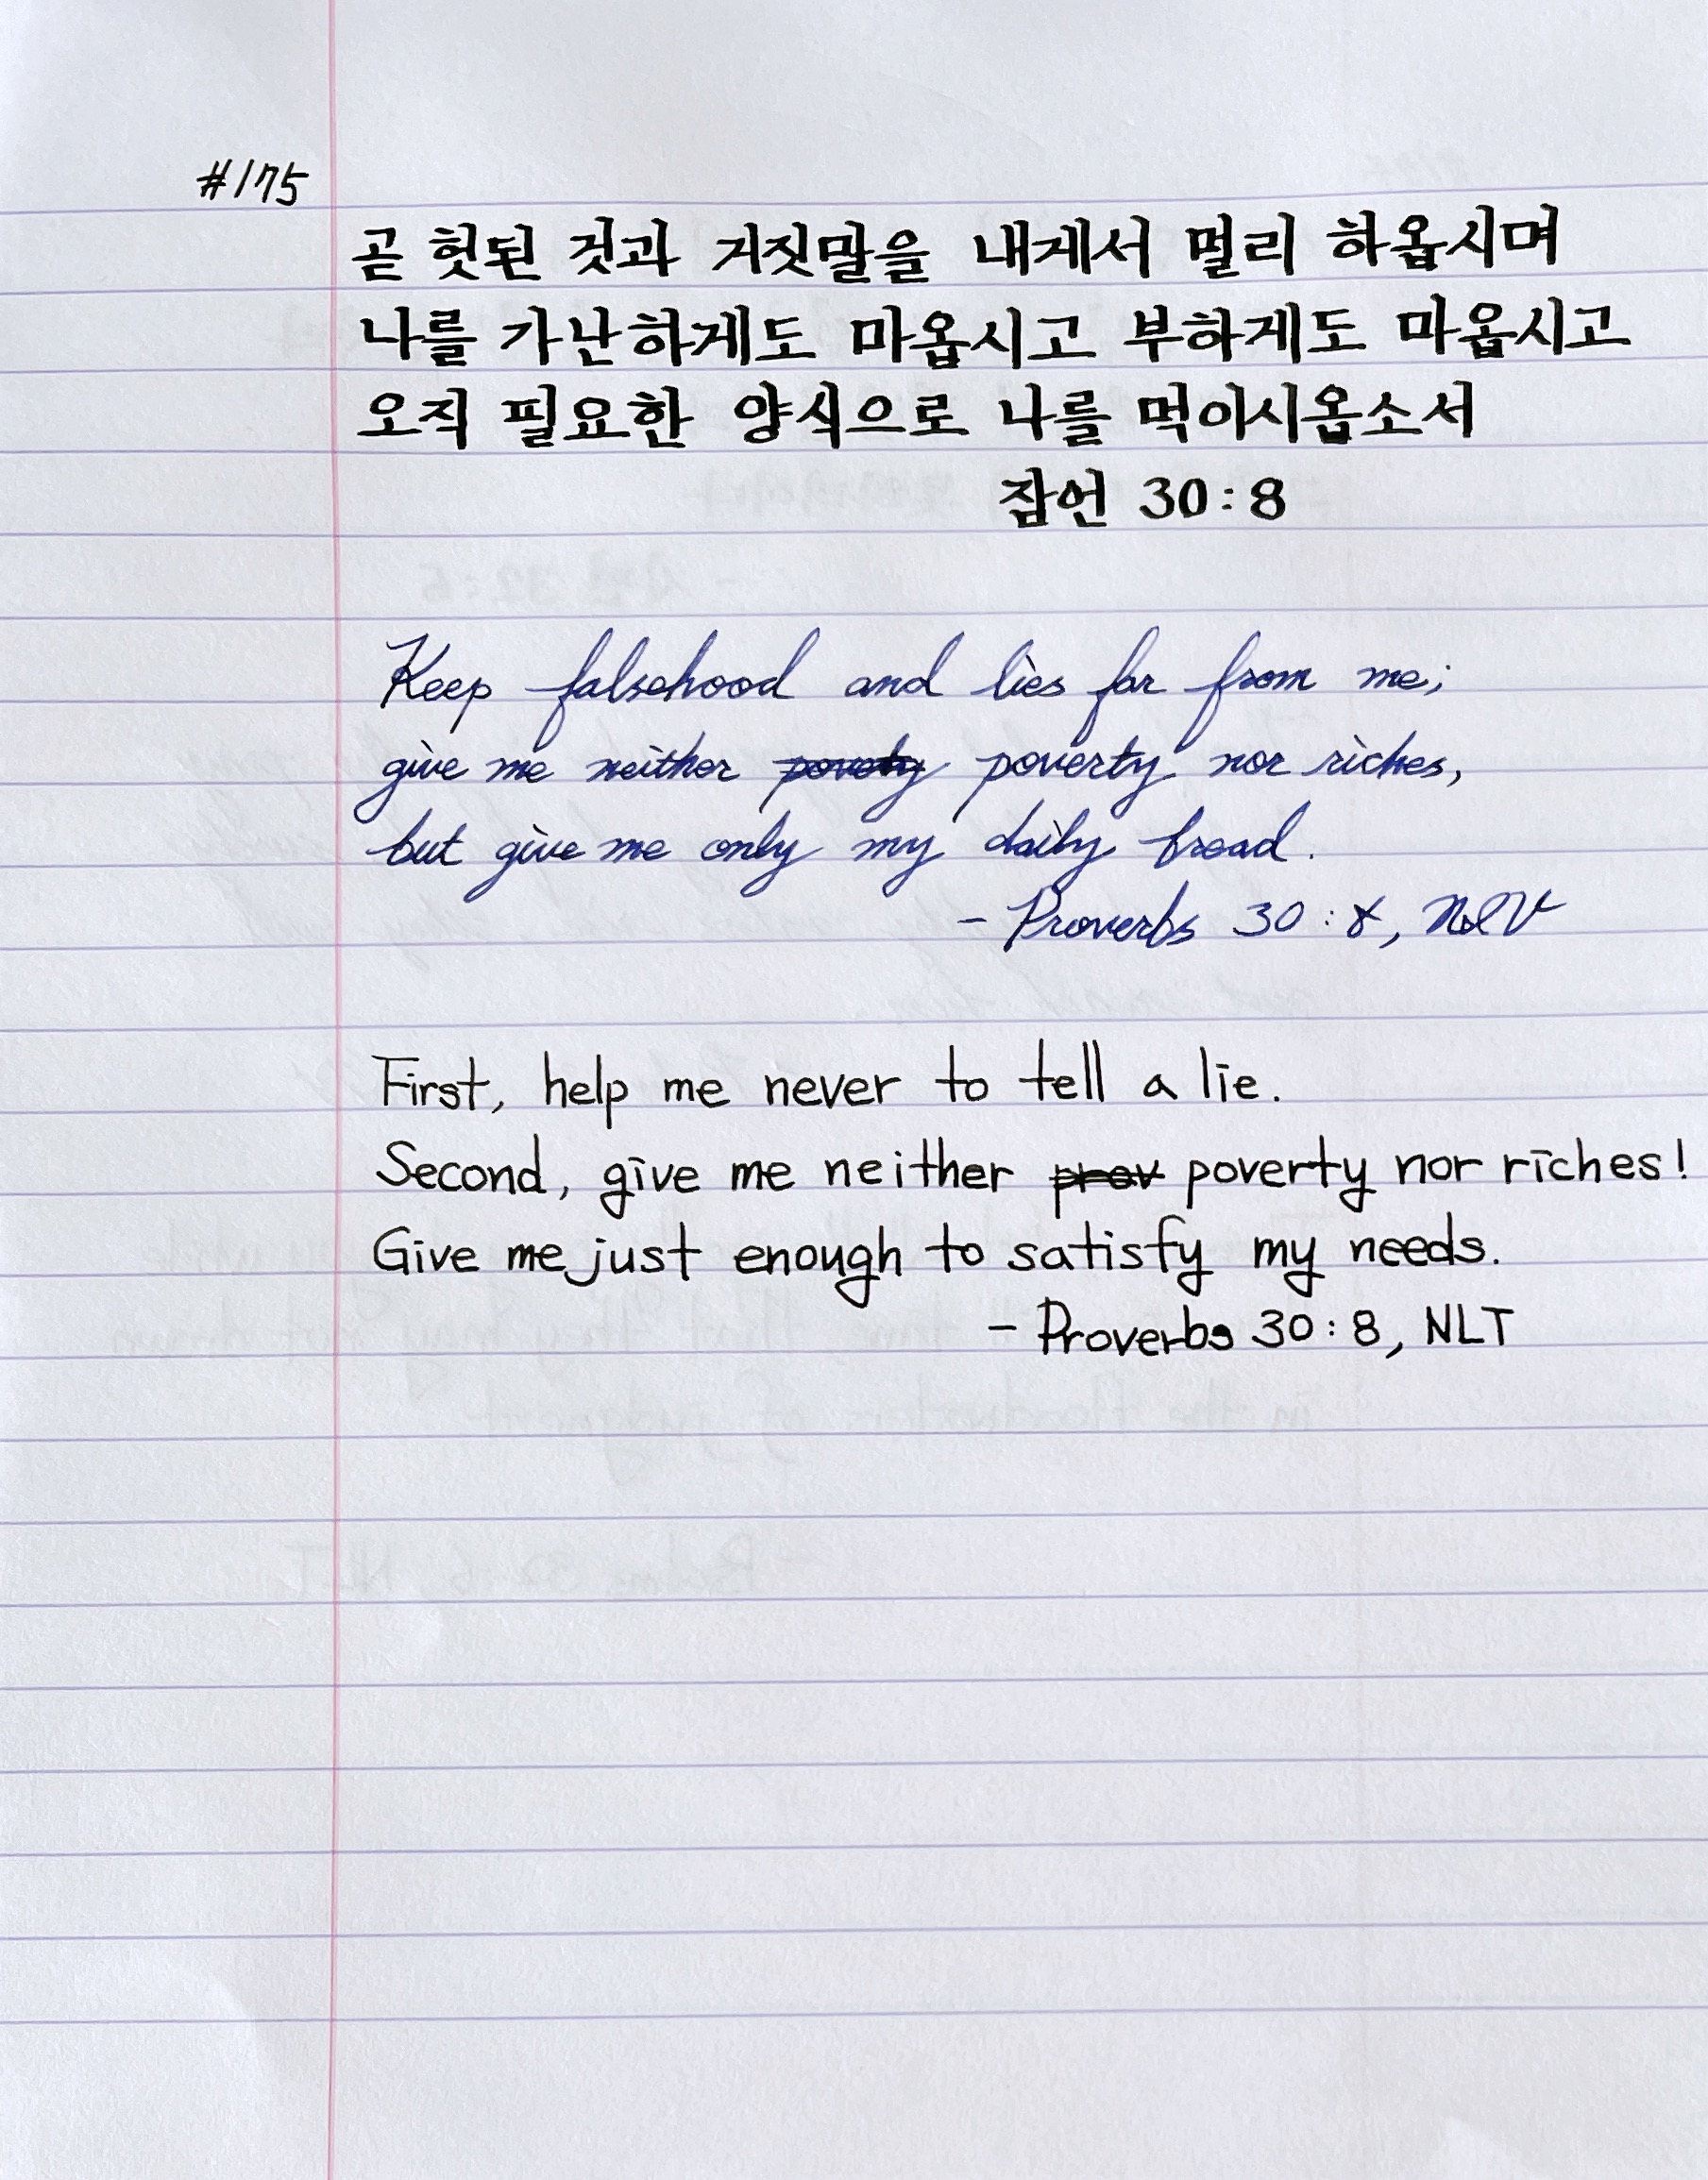 #175
곧 헛된 것과 거짓말을 내게서 멀리 하옵시며
나를 가난하게도 마옵시고 부하게도 마옵시고
오직 필요한 양식으로 나를 먹이시옵소서
잠언 30:8
Keep falsehood and lies far from me;
give me neither poverty nor riches,
but give me only my daily bread.
- Proverbs 30:8, NIV
First, help me never to tell a lie.
Second, give me neither prov poverty nor riches!
Give me just enough to satisfy my needs.
- Proverbs 30:8, NLT